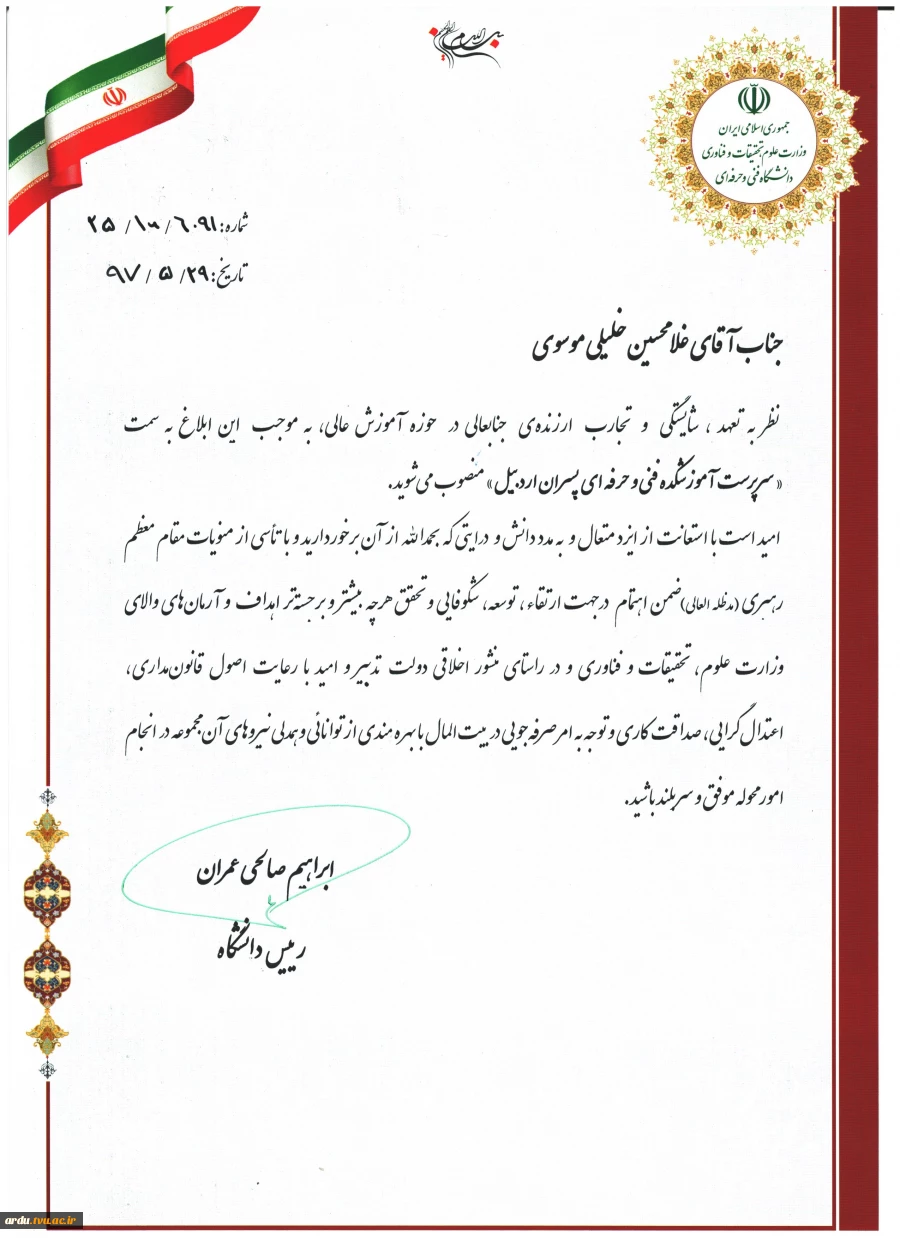 بسم الله الرحمن الرحیم
جمهوری اسلامی ایران
وزارت علوم تحقیقات و فناوری
دانشگاه فنی و حرفه‌ای
شماره: ۲۵/۱۰۰/۶۰۹۱
تاریخ: ۹۷/۵/۲۹
جناب آقای غلامحسین خلیلی موسوی
نظر به تعهد ، شایستگی و تجارب ارزنده‌ی جنابعالی در حوزه آموزش عالی، به موجب این ابلاغ به سمت
«سرپرست آموزشکده فنی و حرفه ای پسران اردبیل» منصوب می‌شوید.
امید است با استعانت از ایزد متعال و به مدد دانش و درایتی که بحمدالله از آن برخوردارید و با تأسی از منویات مقام معظم
رهبری (مدظله العالی) ضمن اهتمام درجهت ارتقاء ، توسعه، شکوفایی و تحقق هرچه بیشتر و برجسته‌تر اهداف و آرمان‌های والای
وزارت علوم، تحقیقات و فناوری و در راستای منشور اخلاقی دولت تدبیر و امید با رعایت اصول قانون‌مداری،
اعتدال گرایی، صداقت کاری و توجه به امر صرفه جویی در بیت المال با بهره مندی از توانائی و همدلی نیروهای آن مجموعه در انجام
امور محوله موفق و سربلند باشید.
ابراهیم صالحی عمران
رییس دانشگاه
ardu.tvu.ac.ir